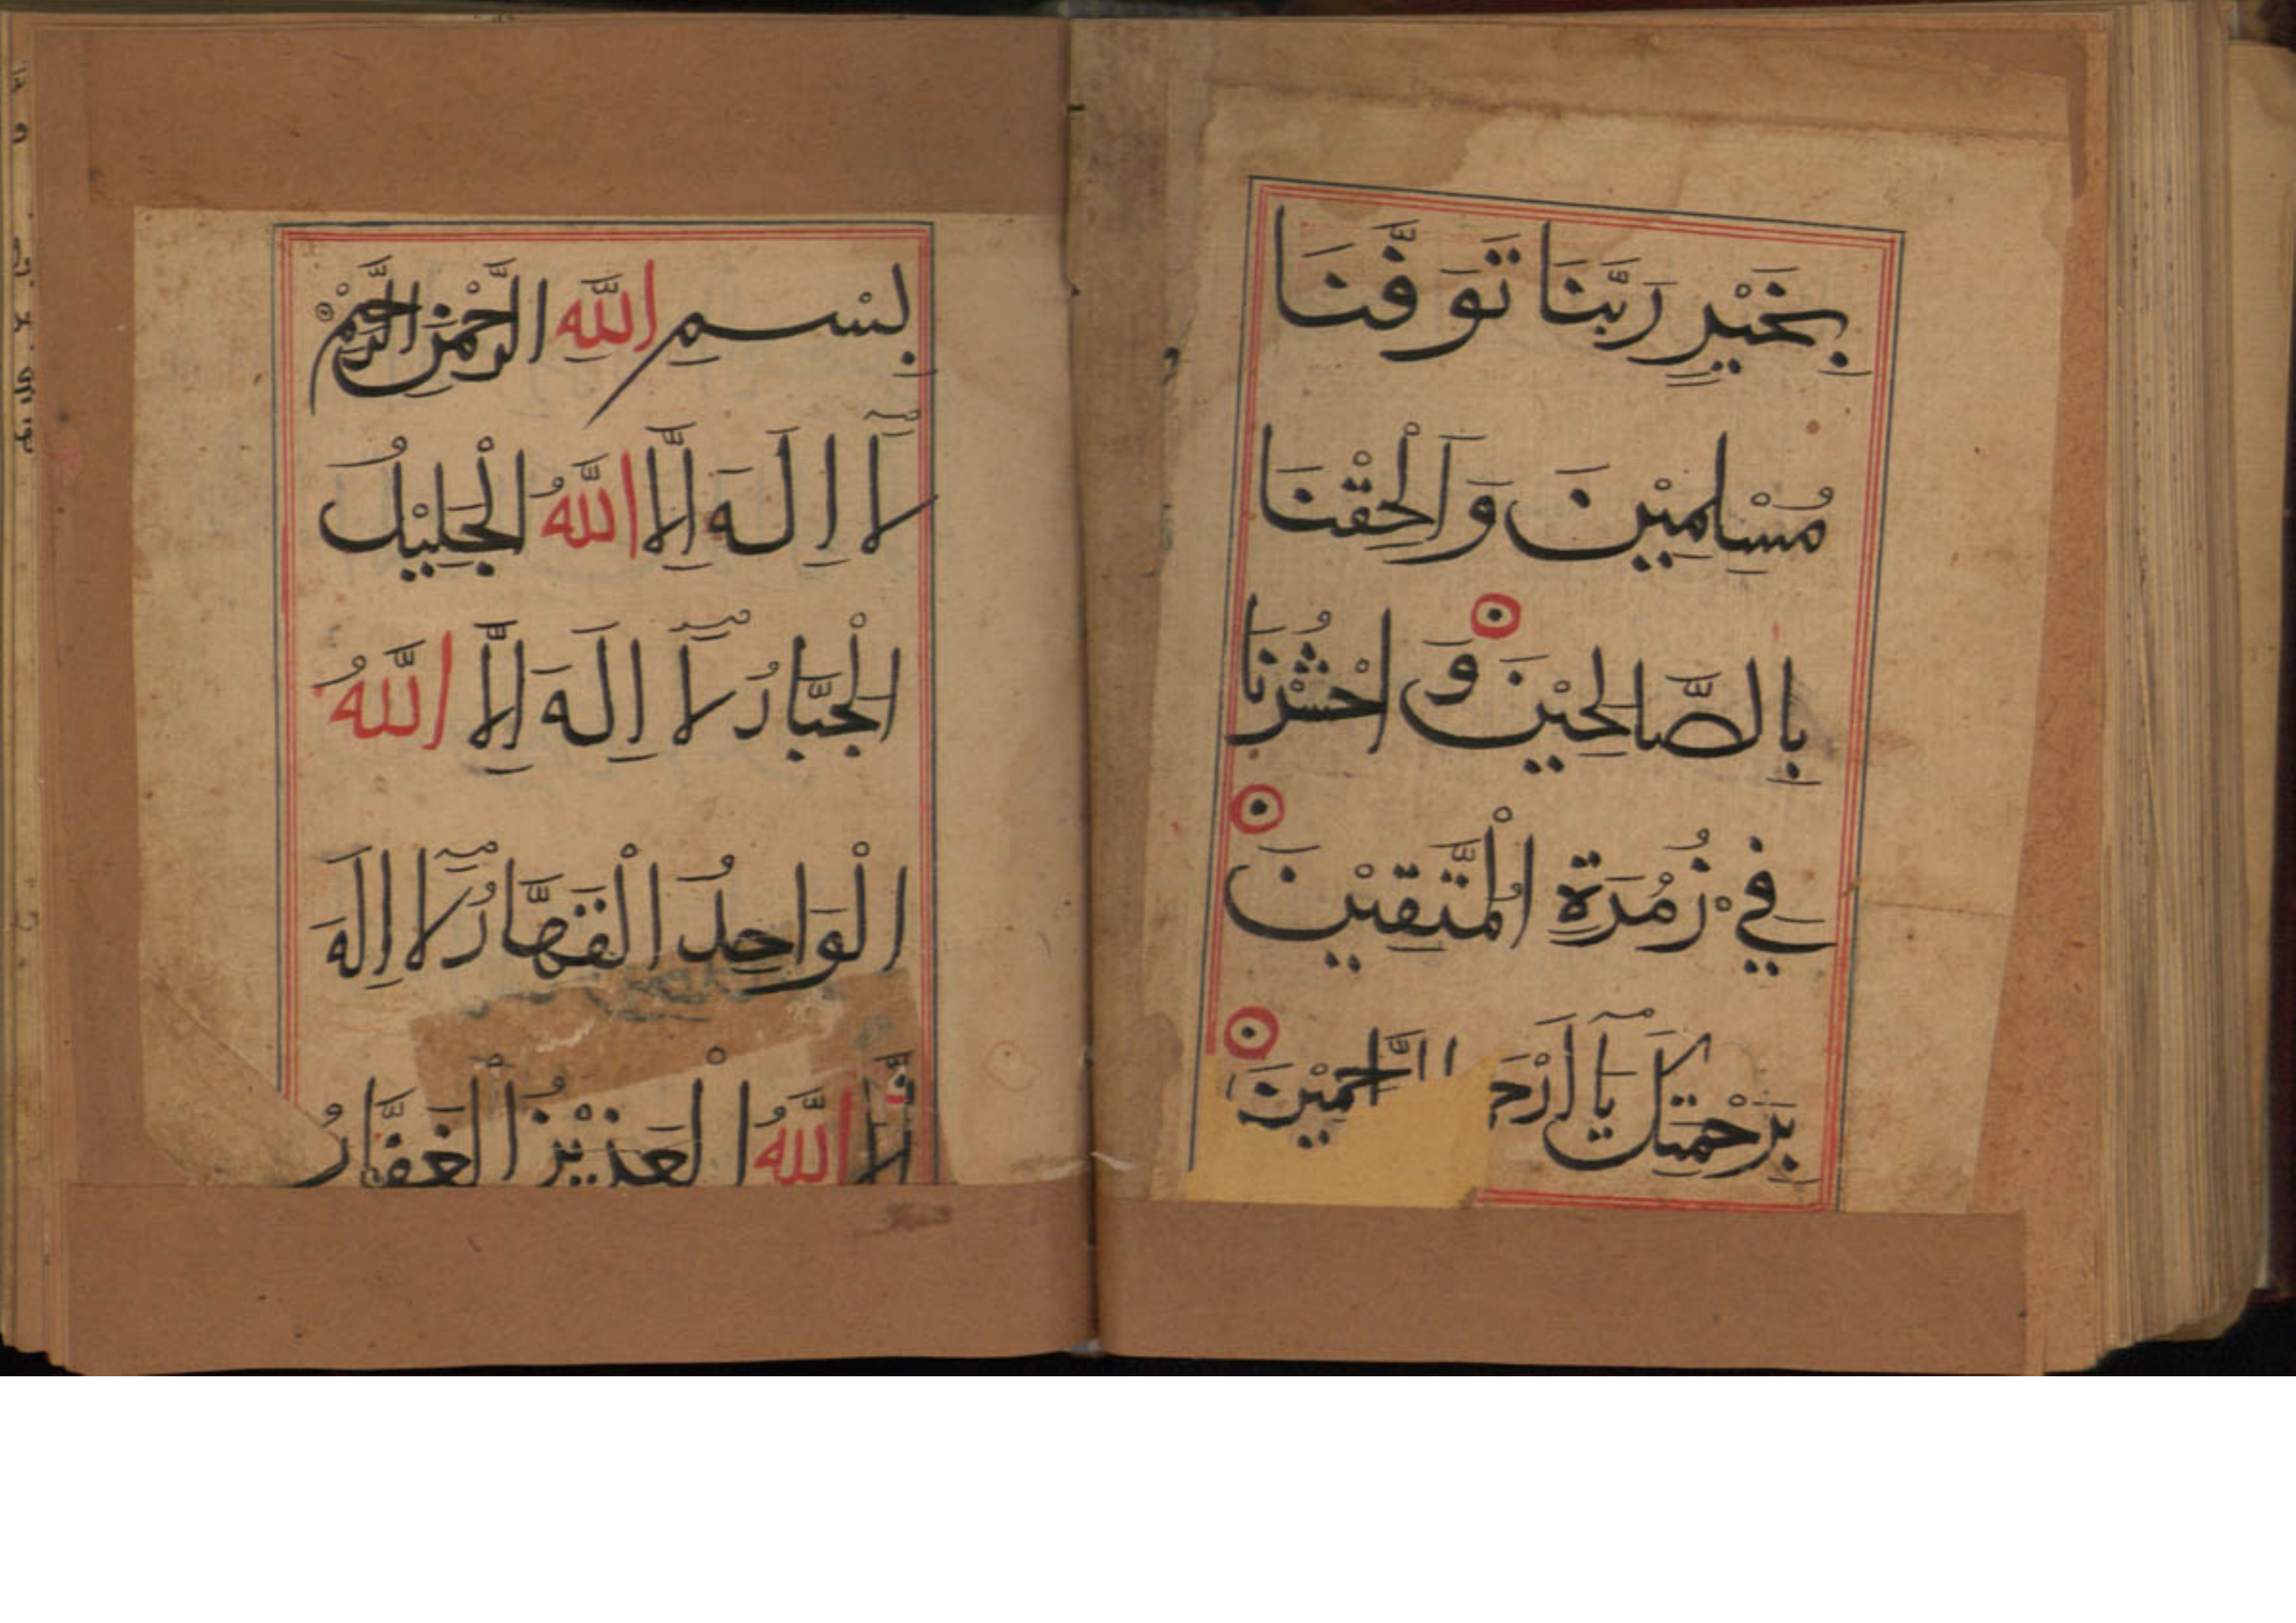 بِخَيْرٍ رَبَّنَا تَوَفَّنَا
مُسْلِمِيْنَ وَاَلْحِقْنَا
بِالصَّالِحِيْنَ وَ احْشُرْنَا
فِيْ زُمْرَةِ الْمُتَّقِيْنَ
بِرَحْمَتِكَ يَآ اَرْحَ الرَّحِمِيْنَ
بِسْمِ اللّٰهِ الرَّحْمٰنِ الرَّحِيْمِ
لَآ اِلٰهَ اِلَّا اللّٰهُ الْجَلِيْلُ
الْجَبَّارُ لَآ اِلٰهَ اِلَّا اللّٰهُ
الْوَاحِدُ الْقَهَّارُ لَآ اِلٰهَ
اِلَّا اللّٰهُ الْعَزِيْزُ الْغَفَّارُ